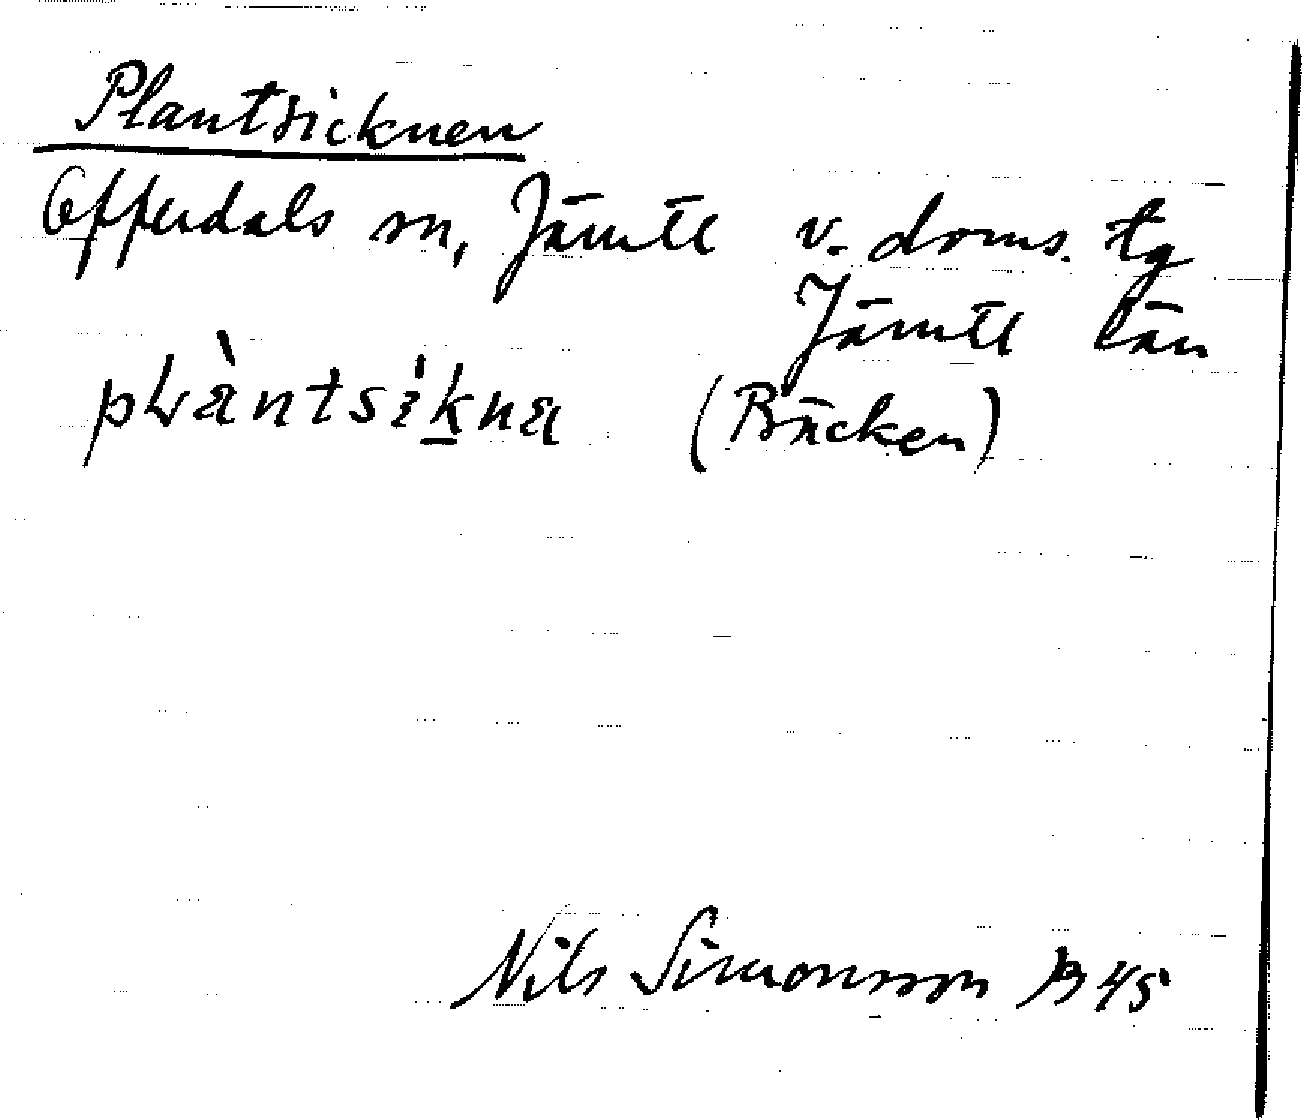 Plantsicknen
Offerdals sn, Jämtl v. doms. tg
Jämtl län
pLàntsìkna (Bäcken)
Nils Simonsson 1945